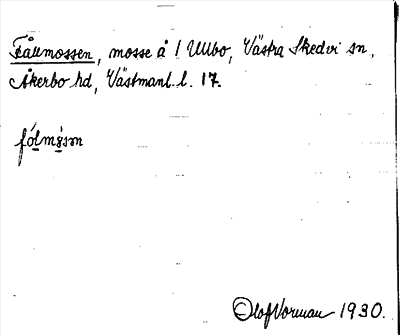 Fållmossen, mosse å 1 Ullbo, Västra Skedvi sn,
Åkerbo hd, Västmanl. l. 17.
Olof Vorman 1930.